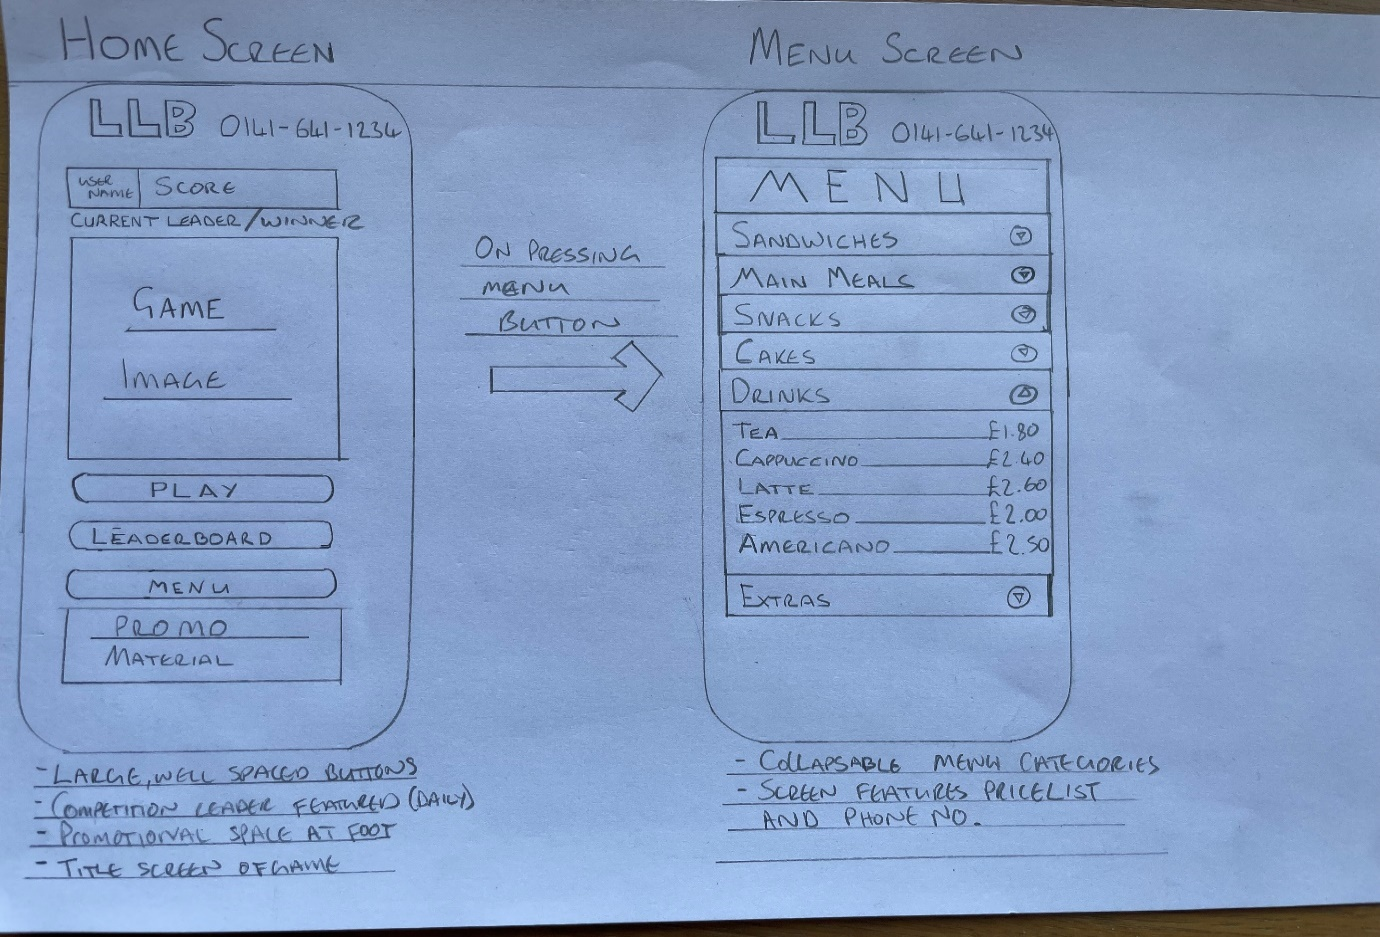 HOME SCREEN
LLB 0141-641-1234
USER NAME SCORE
CURRENT LEADER/WINNER
GAME
IMAGE
PLAY
LEADERBOARD
MENU
PROMO
MATERIAL
- LARGE, WELL SPACED BUTTONS
- COMPETITION LEADER FEATURED (DAILY)
- PROMOTIONAL SPACE AT FOOT
- TITLE SCREEN OF GAME
ON PRESSING
MENU
BUTTON
MENU SCREEN
LLB 0141-641-1234
MENU
SANDWICHES
MAIN MEALS
SNACKS
CAKES
DRINKS
TEA £1.80
CAPPUCCINO £2.40
LATTE £2.60
ESPRESSO £2.00
AMERICANO £2.50
EXTRAS
- COLLAPSABLE MENU CATEGORIES
- SCREEN FEATURES PRICELIST
AND PHONE NO.